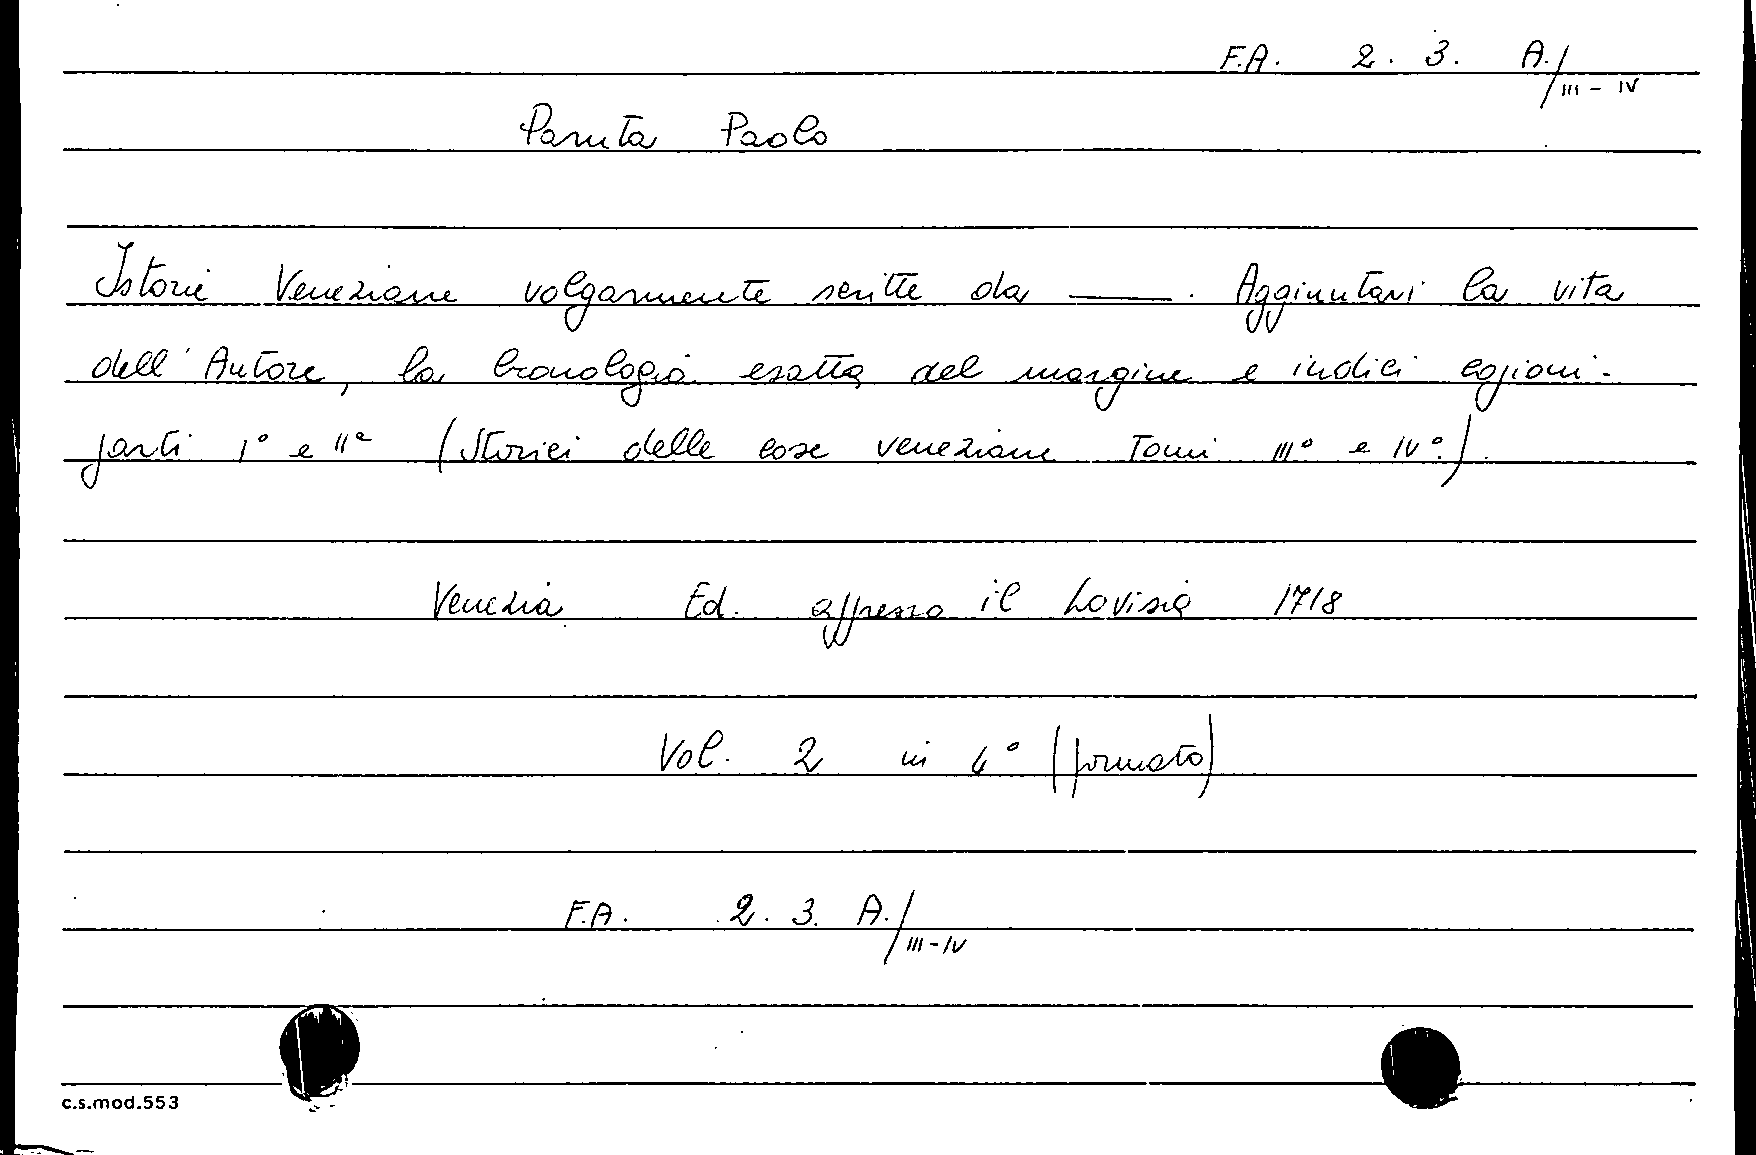 F.A. 2. 3. A./III-IV
Paruta Paolo
Istorie Veneziane volgarmente scritte da ——. Aggiuntavi la vita
dell'Autore, la cronologia esatta del margine e indici copiosi.
parti Iª e IIª (Storici delle cose veneziane Tomi III° e IV°).
Venezia Ed. appresso il Lovisa 1718
Vol. 2 in 4° (formato)
F.A. 2. 3. A./III-IV
c.s.mod.553